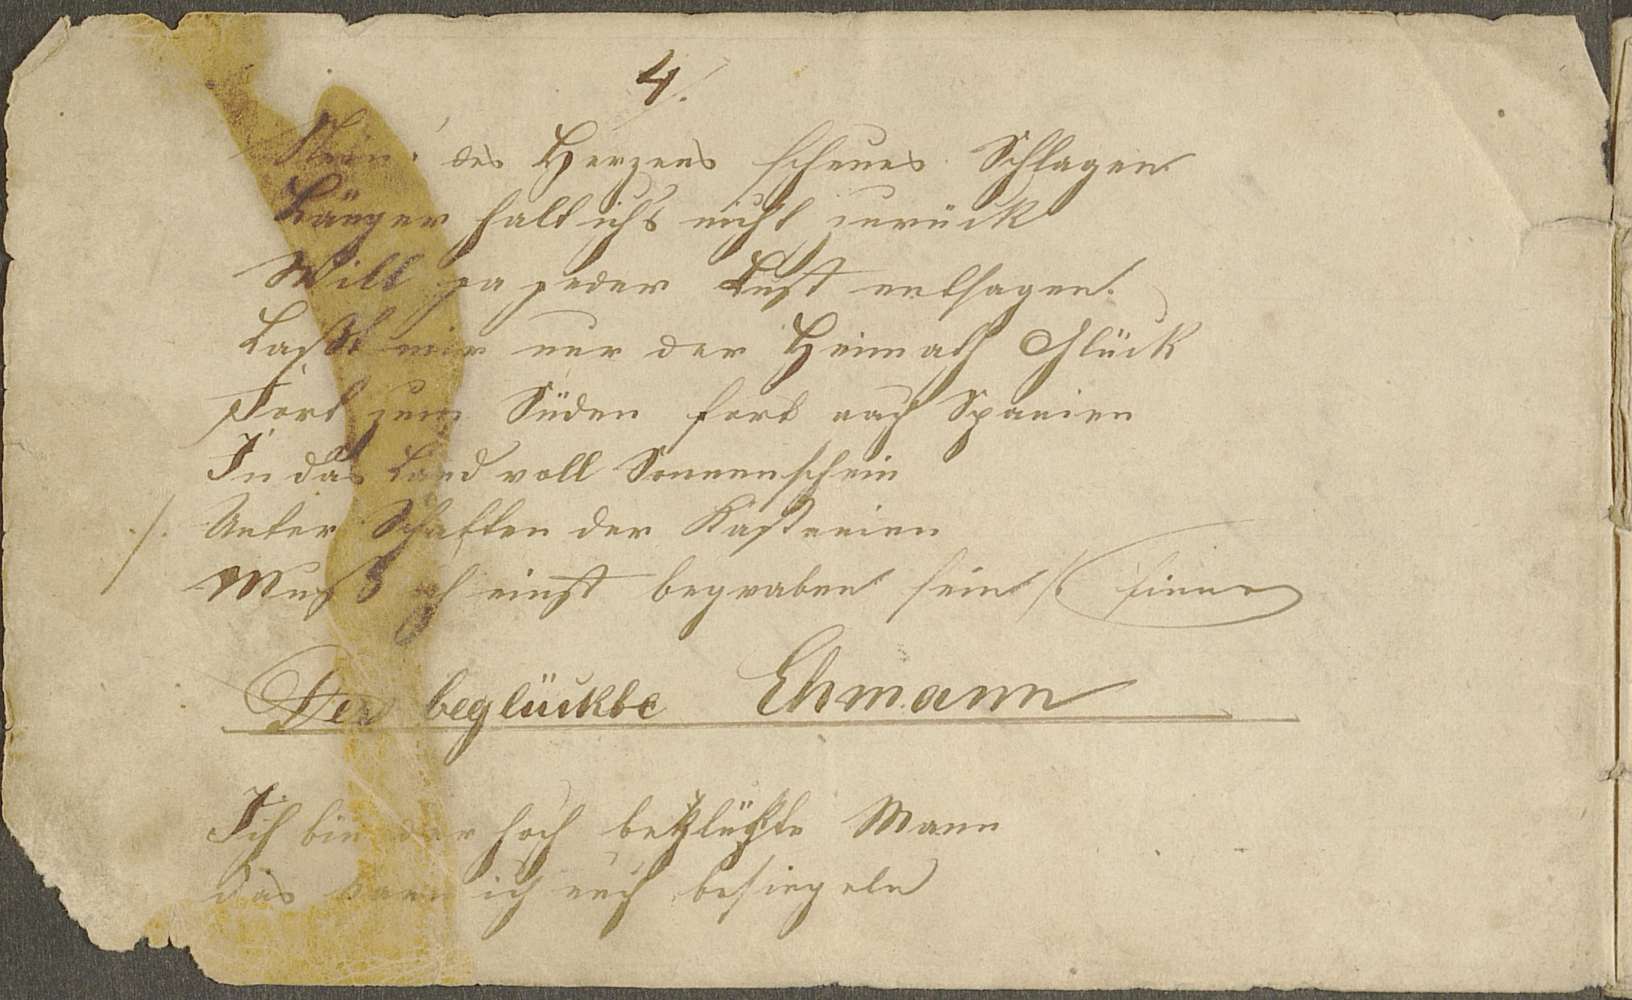 4.
Nein! des Herzens scheues Schlagen
Länger halt ich's nicht zurück
Will ja jeder Lust entsagen.
Laßt mir nur der Heimath Glück
Fort zum Süden fort nach Spanien
In das Land voll Sonnenschein
/. Unter Schatten der Kastanien
Muß ich einst begraben sein /.
Der beglückte Ehmann
Ich bin der hoch beklückte Mann
das kann ich euch besiegeln